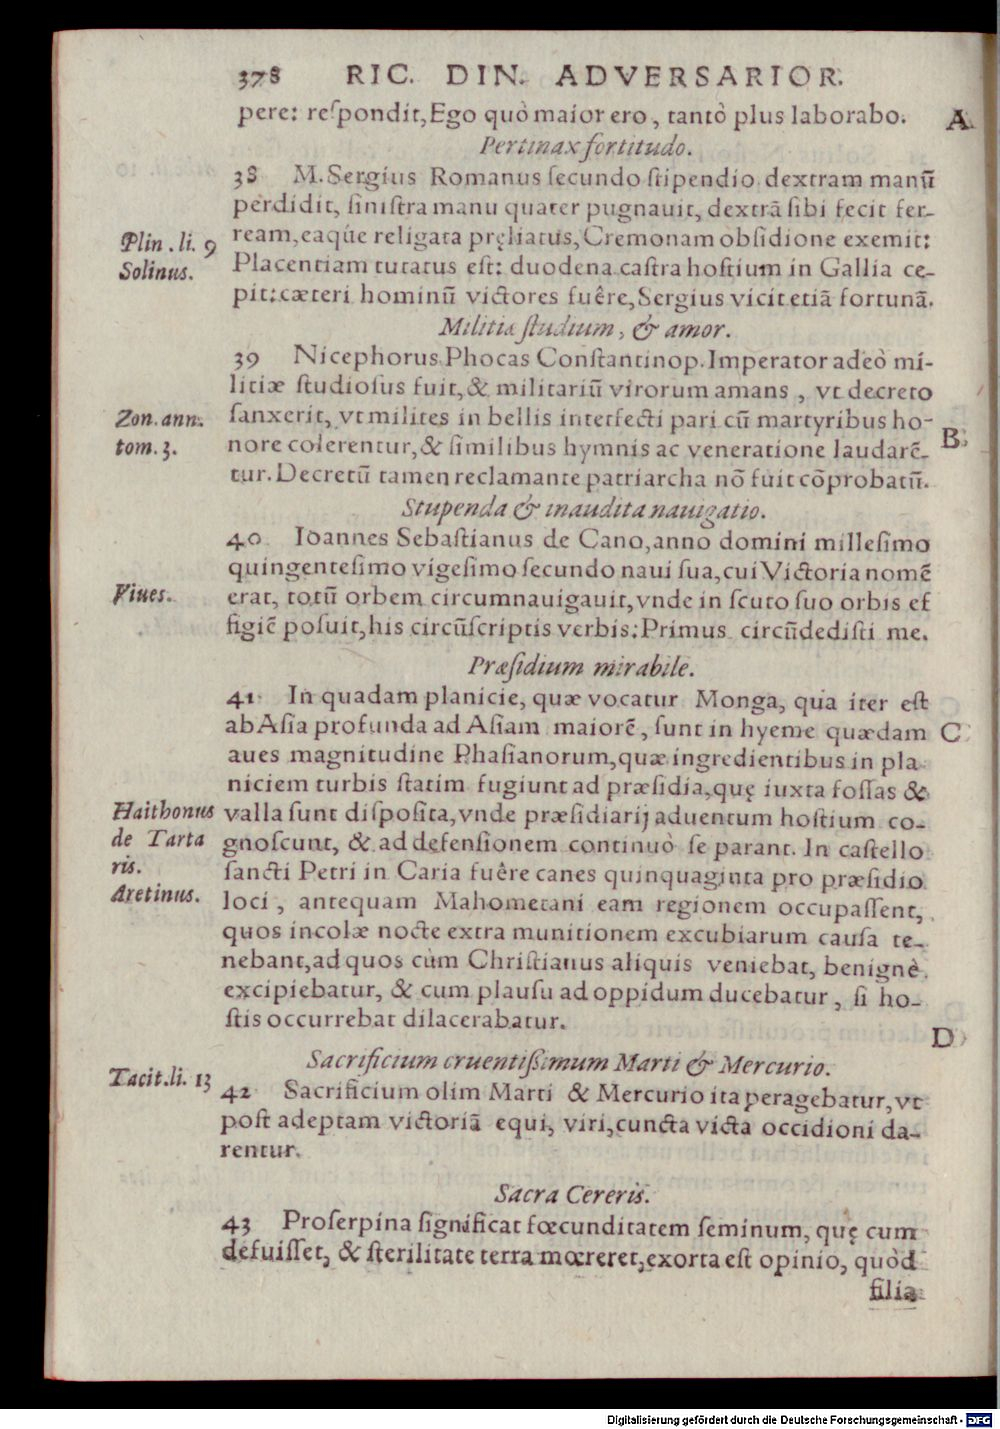 378 RIC. DIN. ADVERSARIOR.
pere: reſpondit, Ego quò maior ero, tantò plus laborabo.
A
Pertinax fortitudo.
38 M. Sergius Romanus ſecundo ſtipendio dextram manū
perdidit, ſiniſtra manu quater pugnauit, dextrā ſibi fecit fer-
Plin. li. 9
Solinus.
ream, eaqúe religata pręliatus, Cremonam obſidione exemit:
Placentiam tutatus eſt: duodena caſtra hoſtium in Gallia ce-
pit: cæteri hominū victores fuêre, Sergius vicit etiā fortunā.
Militiæ ſtudium, & amor.
39 Nicephorus Phocas Conſtantinop. Imperator adeò mi-
litiæ ſtudioſus fuit, & militariū virorum amans, vt decreto
Zon. ann.
tom. 3.
ſanxerit, vt milites in bellis interfecti pari cū martyribus ho-
B
nore colerentur, & ſimilibus hymnis ac veneratione laudarē-
tur. Decretū tamen reclamante patriarcha nō fuit cōprobatū.
Stupenda & inaudita nauigatio.
40 Ioannes Sebaſtianus de Cano, anno domini milleſimo
quingenteſimo vigeſimo ſecundo naui ſua, cui Victoria nomē
Viues.
erat, totū orbem circumnauigauit, vnde in ſcuto ſuo orbis ef
figiē poſuit, his circūſcriptis verbis: Primus circūdediſti me.
Præſidium mirabile.
41 In quadam planicie, quæ vocatur Monga, qua iter eſt
ab Aſia profunda ad Aſiam maiorē, ſunt in hyeme quædam
C
aues magnitudine Phaſianorum, quæ ingredientibus in pla
niciem turbis ſtatim fugiunt ad præſidia, quę iuxta foſſas &
Haithonus
de Tarta
ris.
Aretinus.
valla ſunt diſpoſita, vnde præſidiarij aduentum hoſtium co-
gnoſcunt, & ad defenſionem continuò ſe parant. In caſtello
ſancti Petri in Caria fuêre canes quinquaginta pro præſidio
loci, antequam Mahometani eam regionem occupaſſent,
quos incolæ nocte extra munitionem excubiarum cauſa te-
nebant, ad quos cùm Chriſtianus aliquis veniebat, benignè
excipiebatur, & cum plauſu ad oppidum ducebatur, ſi ho-
ſtis occurrebat dilacerabatur.
D
Sacrificium cruentißimum Marti & Mercurio.
Tacit. li. 13
42 Sacrificium olim Marti & Mercurio ita peragebatur, vt
poſt adeptam victoriā equi, viri, cuncta victa occidioni da-
rentur.
Sacra Cereris.
43 Proſerpina ſignificat fœcunditatem ſeminum, quę cum
defuiſſet, & ſterilitate terra mœreret, exorta eſt opinio, quòd
filia
Digitalisierung gefördert durch die Deutsche Forschungsgemeinschaft - DFG